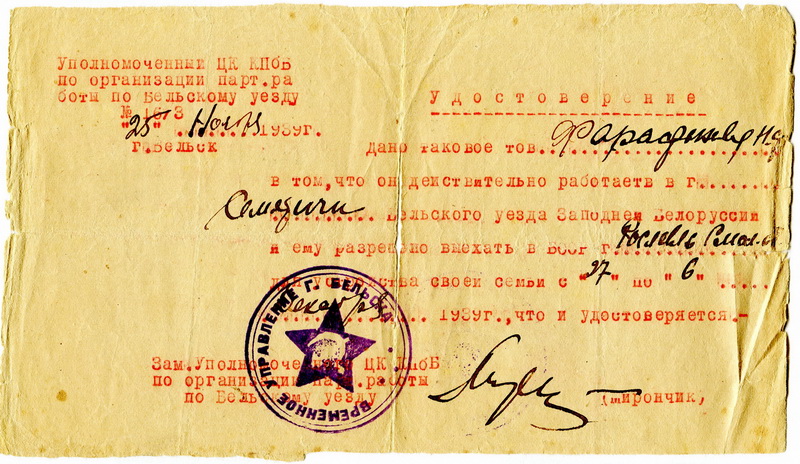 Уполномоченный ЦК КПбБ
по организации парт.ра
боты по Бельскому уезду
№ 1613
"25" Ноября 1939г.
г.Бельск
Удостоверение
Дано таковое тов.
в том,что он действительно работаетв в г.
Семятичи Бельского уезда Заподней Белоруссии
и ему разрешно выехать в БССР г. Рославль Смол.
для устройства своей семьи с "27" по "6"
Декабря 1939г.,что и удостоверяется.-
Зам.Уполномоченного ЦК КПбБ
по организации парт.работы
по Бельскому уезду (Мирончик)
ВРЕМЕННОЕ УПРАВЛЕНИЕ Г. БЕЛЬСКА